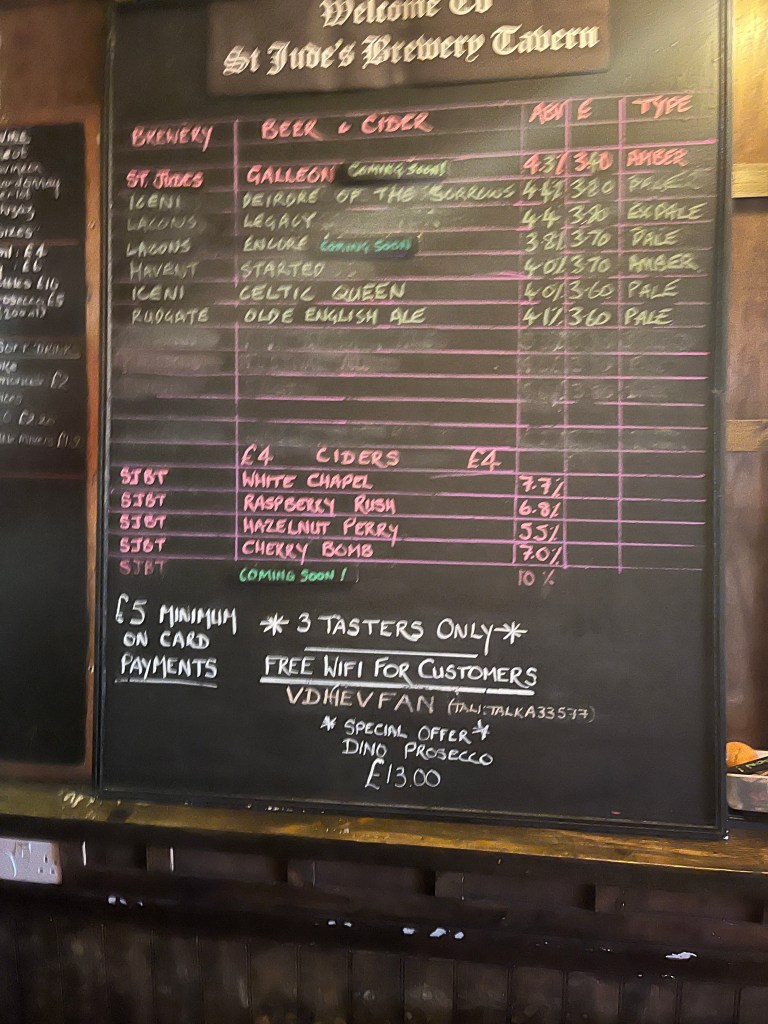 Welcome To
St Jude's Brewery Tavern
BREWERY BEER & CIDER ABV £ TYPE
ST. JUDES GALLEON COMING SOON! 4.3% 3.40 AMBER
ICENI DEIRDRE OF THE SORROWS 4.4% 3.80 PALE
LACONS LEGACY 4.4 3.80 EX.PALE
LACONS ENCORE COMING SOON 3.8% 3.70 PALE
HAVENT STARTED 4.0% 3.70 AMBER
ICENI CELTIC QUEEN 4.0% 3.60 PALE
RUDGATE OLDE ENGLISH ALE 4.1% 3.60 PALE
£4 CIDERS £4
SJBT WHITE CHAPEL 7.7%
SJBT RASPBERRY RUSH 6.8%
SJBT HAZELNUT PERRY 5.5%
SJBT CHERRY BOMB 7.0%
SJBT COMING SOON! 10%
£5 MINIMUM
ON CARD
PAYMENTS
* 3 TASTERS ONLY *
FREE WIFI FOR CUSTOMERS
VDHEVFAN (TALKTALKA33577)
* SPECIAL OFFER *
DINO PROSECCO
£13.00